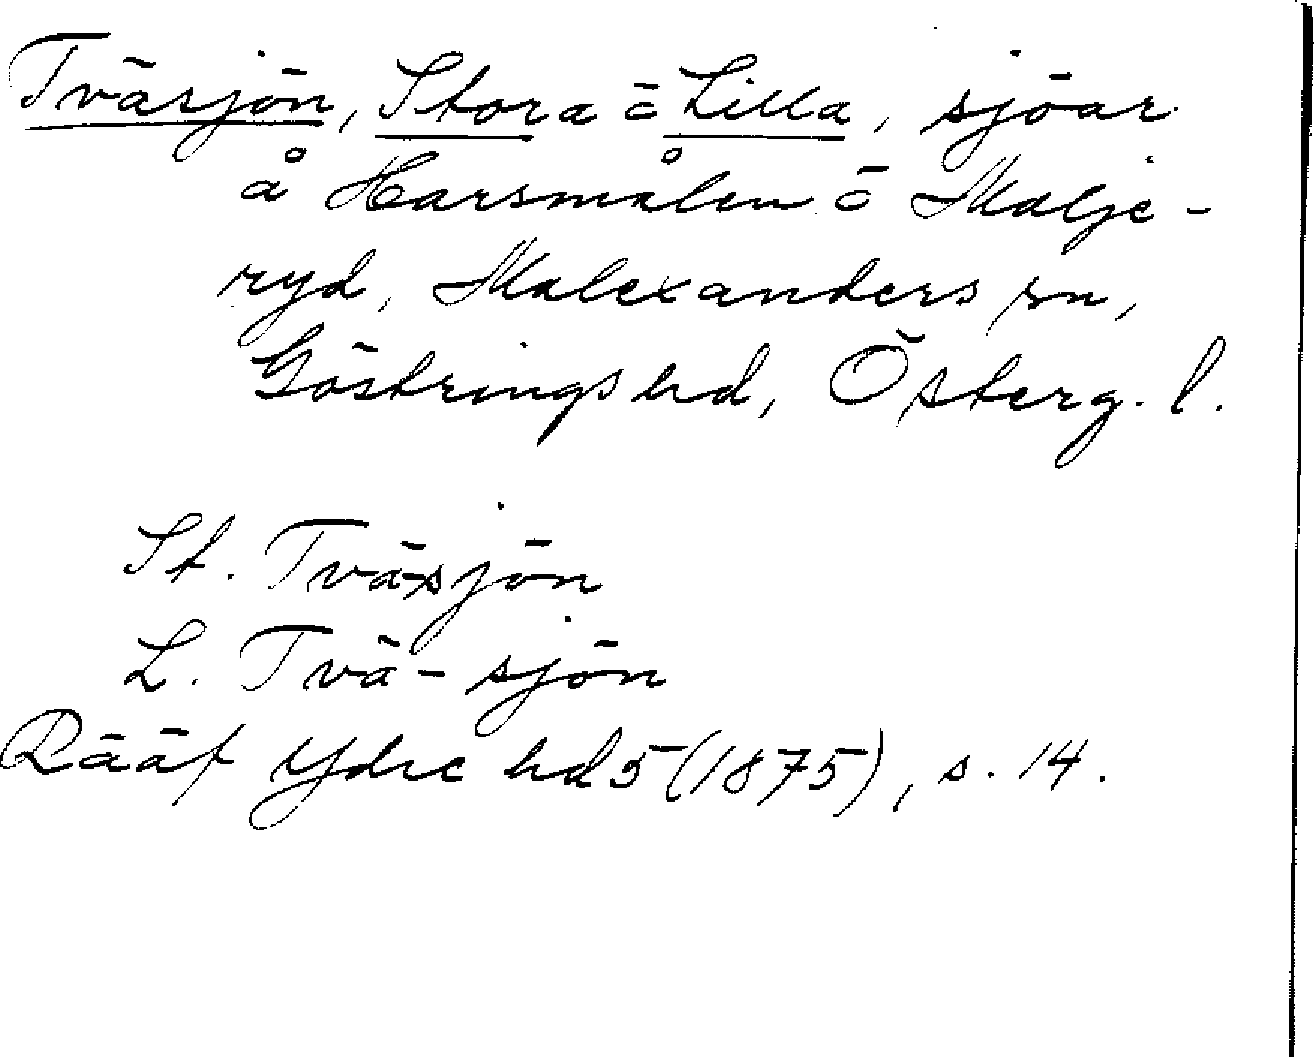 Tvärsjön, Stora o Lilla, sjöar
å Harsmålen o Malje-
ryd, Malexanders sn,
Göstrings hd, Österg. l.
St. Tväsjön
L. Tvä-sjön
Rääf Ydre hd 5 (1875), s. 14.